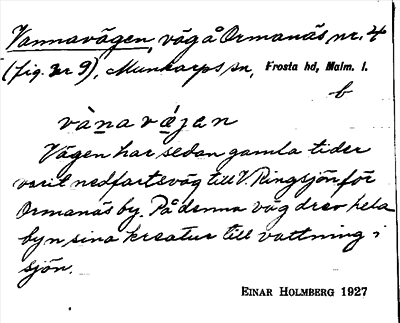 Vannavägen, väg å Ormanäs nr. 4
(fig. nr 9), Munkarps sn, Frosta hd, Malm. l.
b
vànavǽjen
Vägen har sedan gamla tider
varit nedfartsväg till V. Ringsjön för
Ormanäs by. På denna väg drev hela
byn sina kreatur till vattning i
sjön.
EINAR HOLMBERG 1927